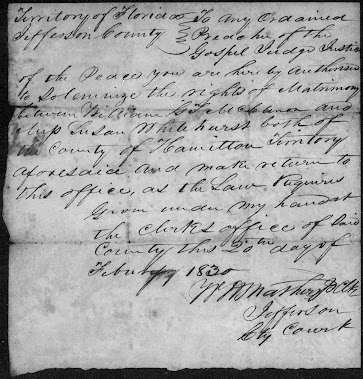 Territory of Florida } To any Ordained
Jefferson County } Preache of the
Gospel Judge Justice
of the Peace, you are hire by Authorise
to Solemnize the rights of Matrimony
between William G. and
Miss Susan Whitehurst both of
the County of Hamilton Territory
aforesaid and make return to
this office, as the Law Requires
Given under my hand at
the Clerks office of Said
County this 20th day of
February 1830
Clk
Jefferson
Cty Court